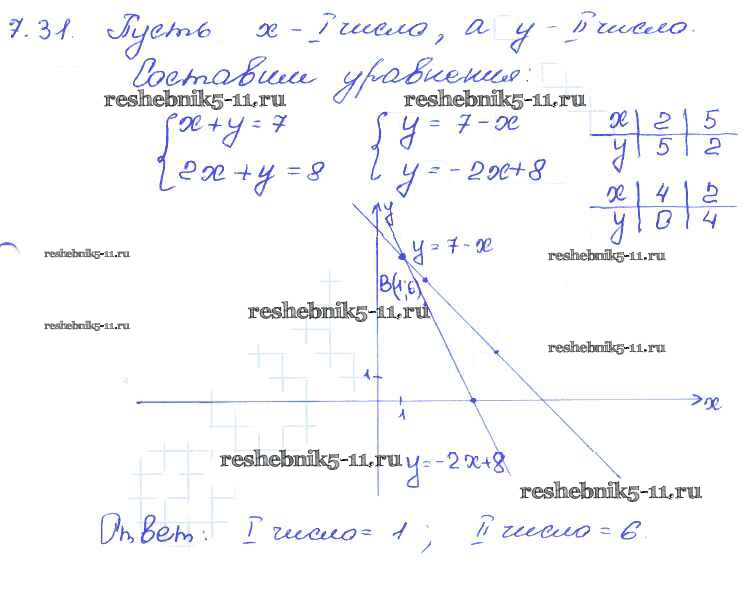 7.31. Пусть x - I число, а y - II число.
Составим уравнения:
reshebnik5-11.ru reshebnik5-11.ru
{ x + y = 7 { y = 7 - x
2x + y = 8 y = -2x + 8
x | 2 | 5
y | 5 | 2
x | 4 | 2
y | 0 | 4
y
y = 7 - x
reshebnik5-11.ru reshebnik5-11.ru
B(1;6)
reshebnik5-11.ru
reshebnik5-11.ru reshebnik5-11.ru
1
1
x
reshebnik5-11.ru
y = -2x + 8
reshebnik5-11.ru
Ответ: I число = 1; II число = 6.